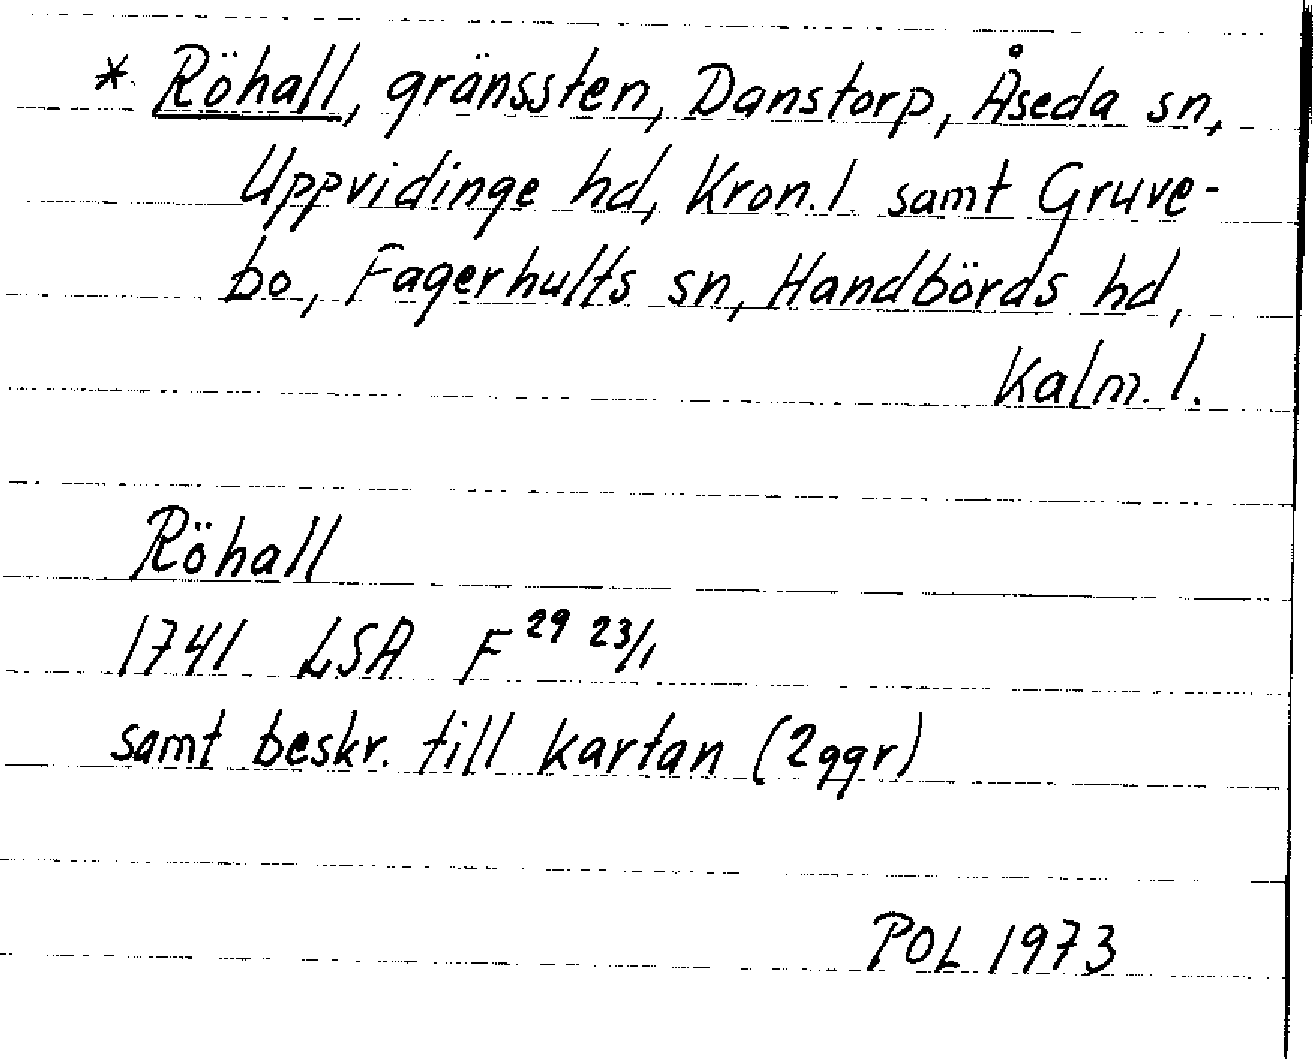 * Röhall, gränssten, Danstorp, Åseda sn,
Uppvidinge hd, Kron.l. samt Gruve-
bo, Fagerhults sn, Handbörds hd,
Kalm. l.
Röhall
1741 LSA F 29 23/1
samt beskr. till kartan (2ggr)
POL 1973